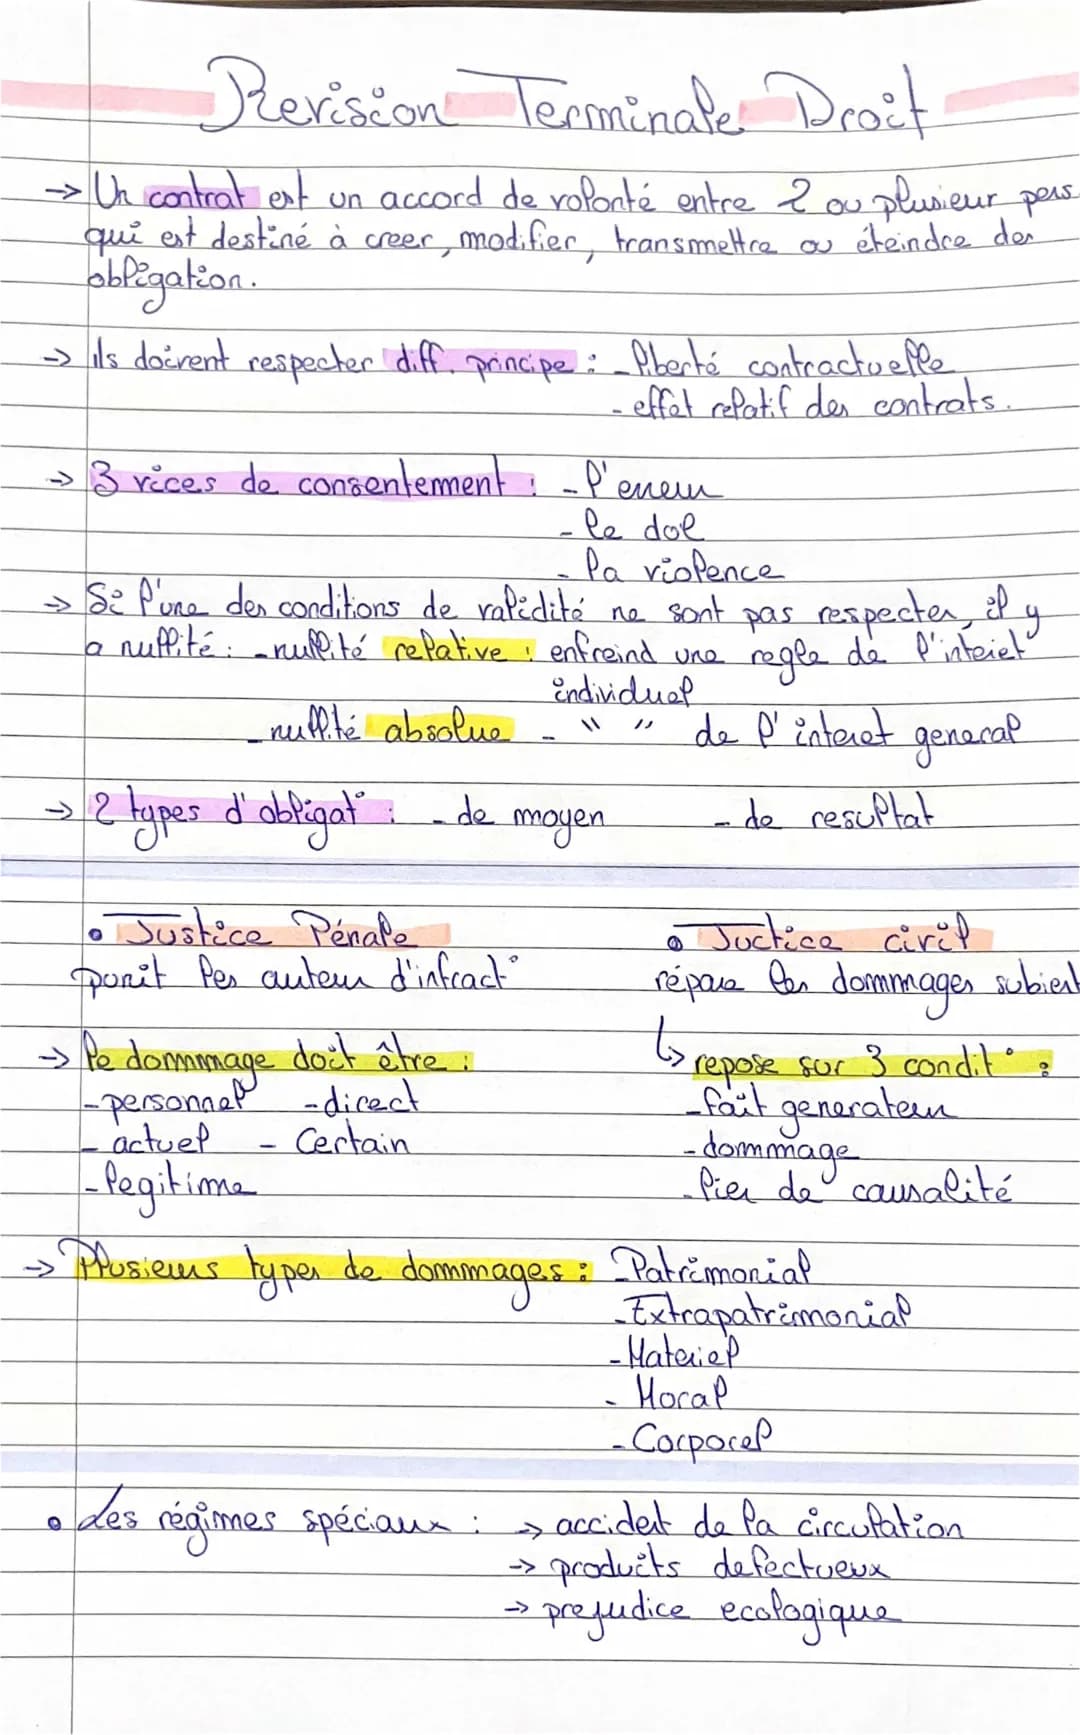 Revision Terminale Droit
-> Un contrat est un accord de volonté entre 2 ou plusieur pers.
qui est destiné à creer, modifier, transmettre ou éteindre des
obligation.
-> ils doivent respecter diff. principe : - liberté contractuelle
- effet relatif des contrats.
-> 3 vices de consentement : - l'erreur
- le dol
- la violence
-> Si l'une des conditions de validité ne sont pas respecter, il y
a nullité : - nullité relative : enfreind une regle de l'interet
individuel
- nullité absolue - " " de l'interet general
-> 2 types d'obligat° : - de moyen - de resultat
• Justice Pénale
punit les auteur d'infract°
• Juctice civil
répare les dommages subient
↳ repose sur 3 condit° :
- fait generateur
- dommage
- lien de causalité
-> le dommage doit être :
- personnel - direct
- actuel - Certain
- legitime
-> Plusieurs types de dommages : - Patrimonial
- Extrapatrimonial
- Materiel
- Moral
- Corporel
• Les régimes spéciaux : -> accident de la circulation
-> produits defectueux
-> prejudice ecologique